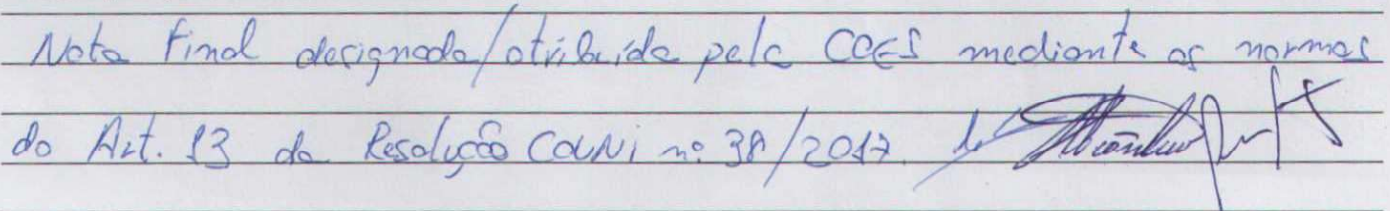 Nota Final designada/atribuída pela COES mediante as normas
do Art. 13 da Resolução COUNI nº 38/2017.